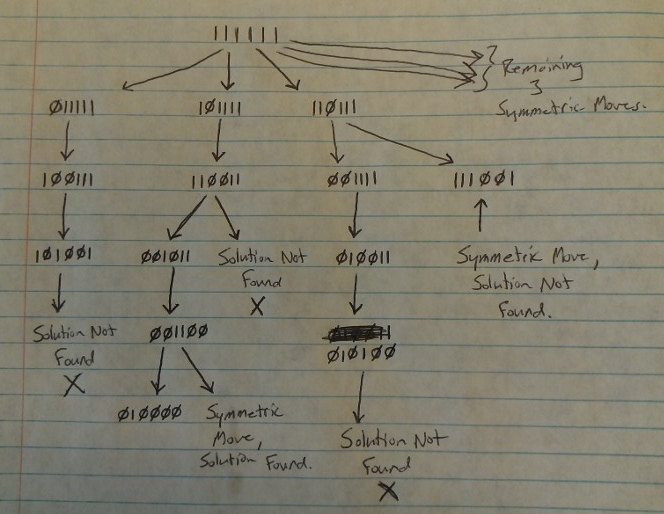 111111
Remaining
3
Symmetric Moves.
Ø11111 1Ø1111 11Ø111
1ØØ111 11ØØ11 ØØ1111 111ØØ1
1Ø1ØØ1 ØØ1Ø11 Solution Not Found X Ø1ØØ11 Symmetric Move,
Solution Not
Found.
Solution Not
Found
X
ØØ11ØØ
Ø1Ø1ØØ
Ø1ØØØØ
Symmetric
Move,
Solution Found.
Solution Not
Found
X